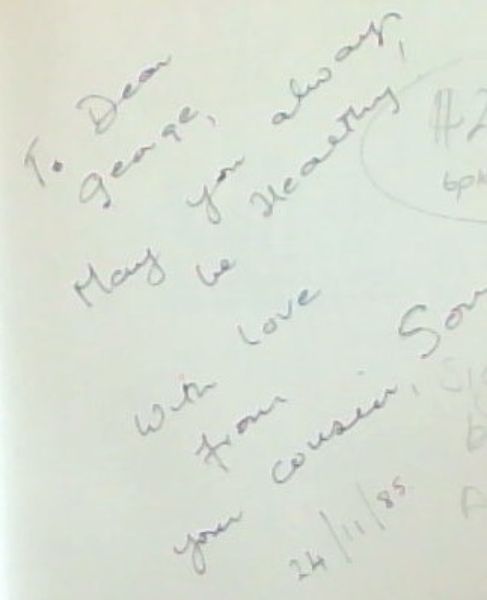 To Dear
George,
May you always,
be Healthy
With Love
from
your cousin,
24/11/85